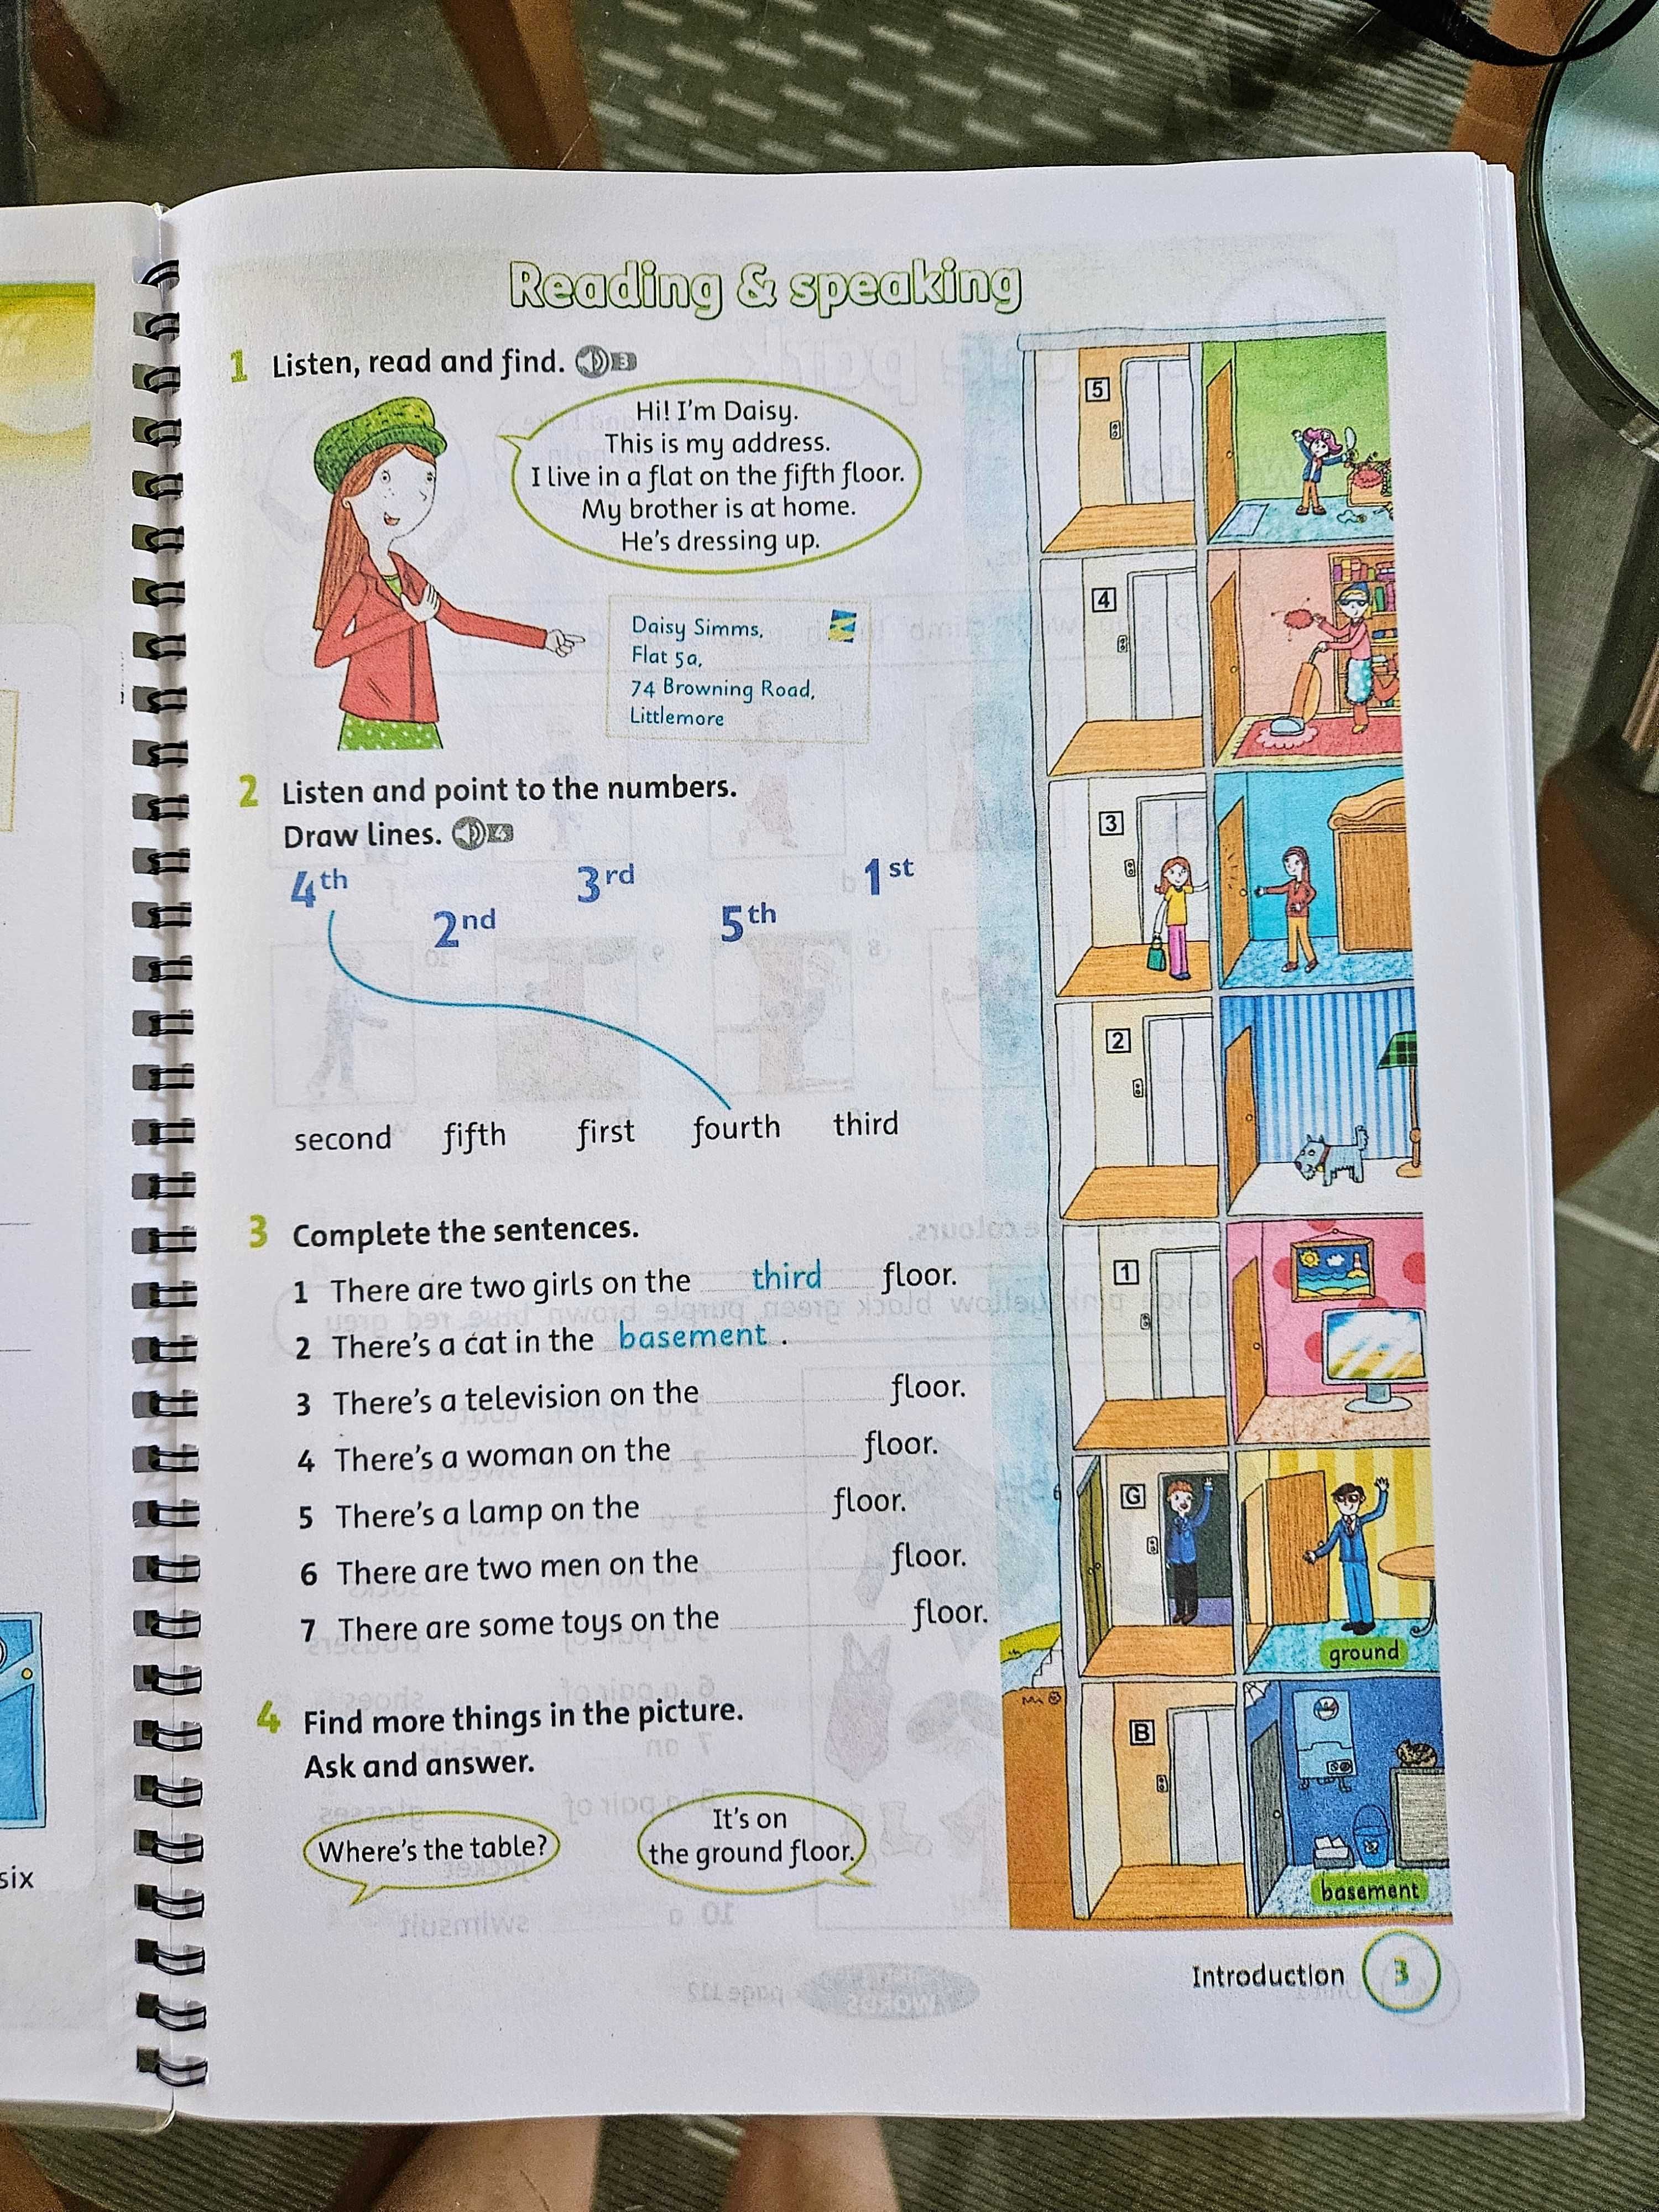 Reading & speaking
1 Listen, read and find. 3
Hi! I'm Daisy.
This is my address.
I live in a flat on the fifth floor.
My brother is at home.
He's dressing up.
Daisy Simms,
Flat 5a,
74 Browning Road,
Littlemore
2 Listen and point to the numbers.
Draw lines. 4
4th 2nd 3rd 5th 1st
second fifth first fourth third
3 Complete the sentences.
1 There are two girls on the third floor.
2 There's a cat in the basement .
3 There's a television on the floor.
4 There's a woman on the floor.
5 There's a lamp on the floor.
6 There are two men on the floor.
7 There are some toys on the floor.
4 Find more things in the picture.
Ask and answer.
Where's the table?
It's on
the ground floor.
5
4
3
2
1
G
ground
B
basement
Introduction 3
six